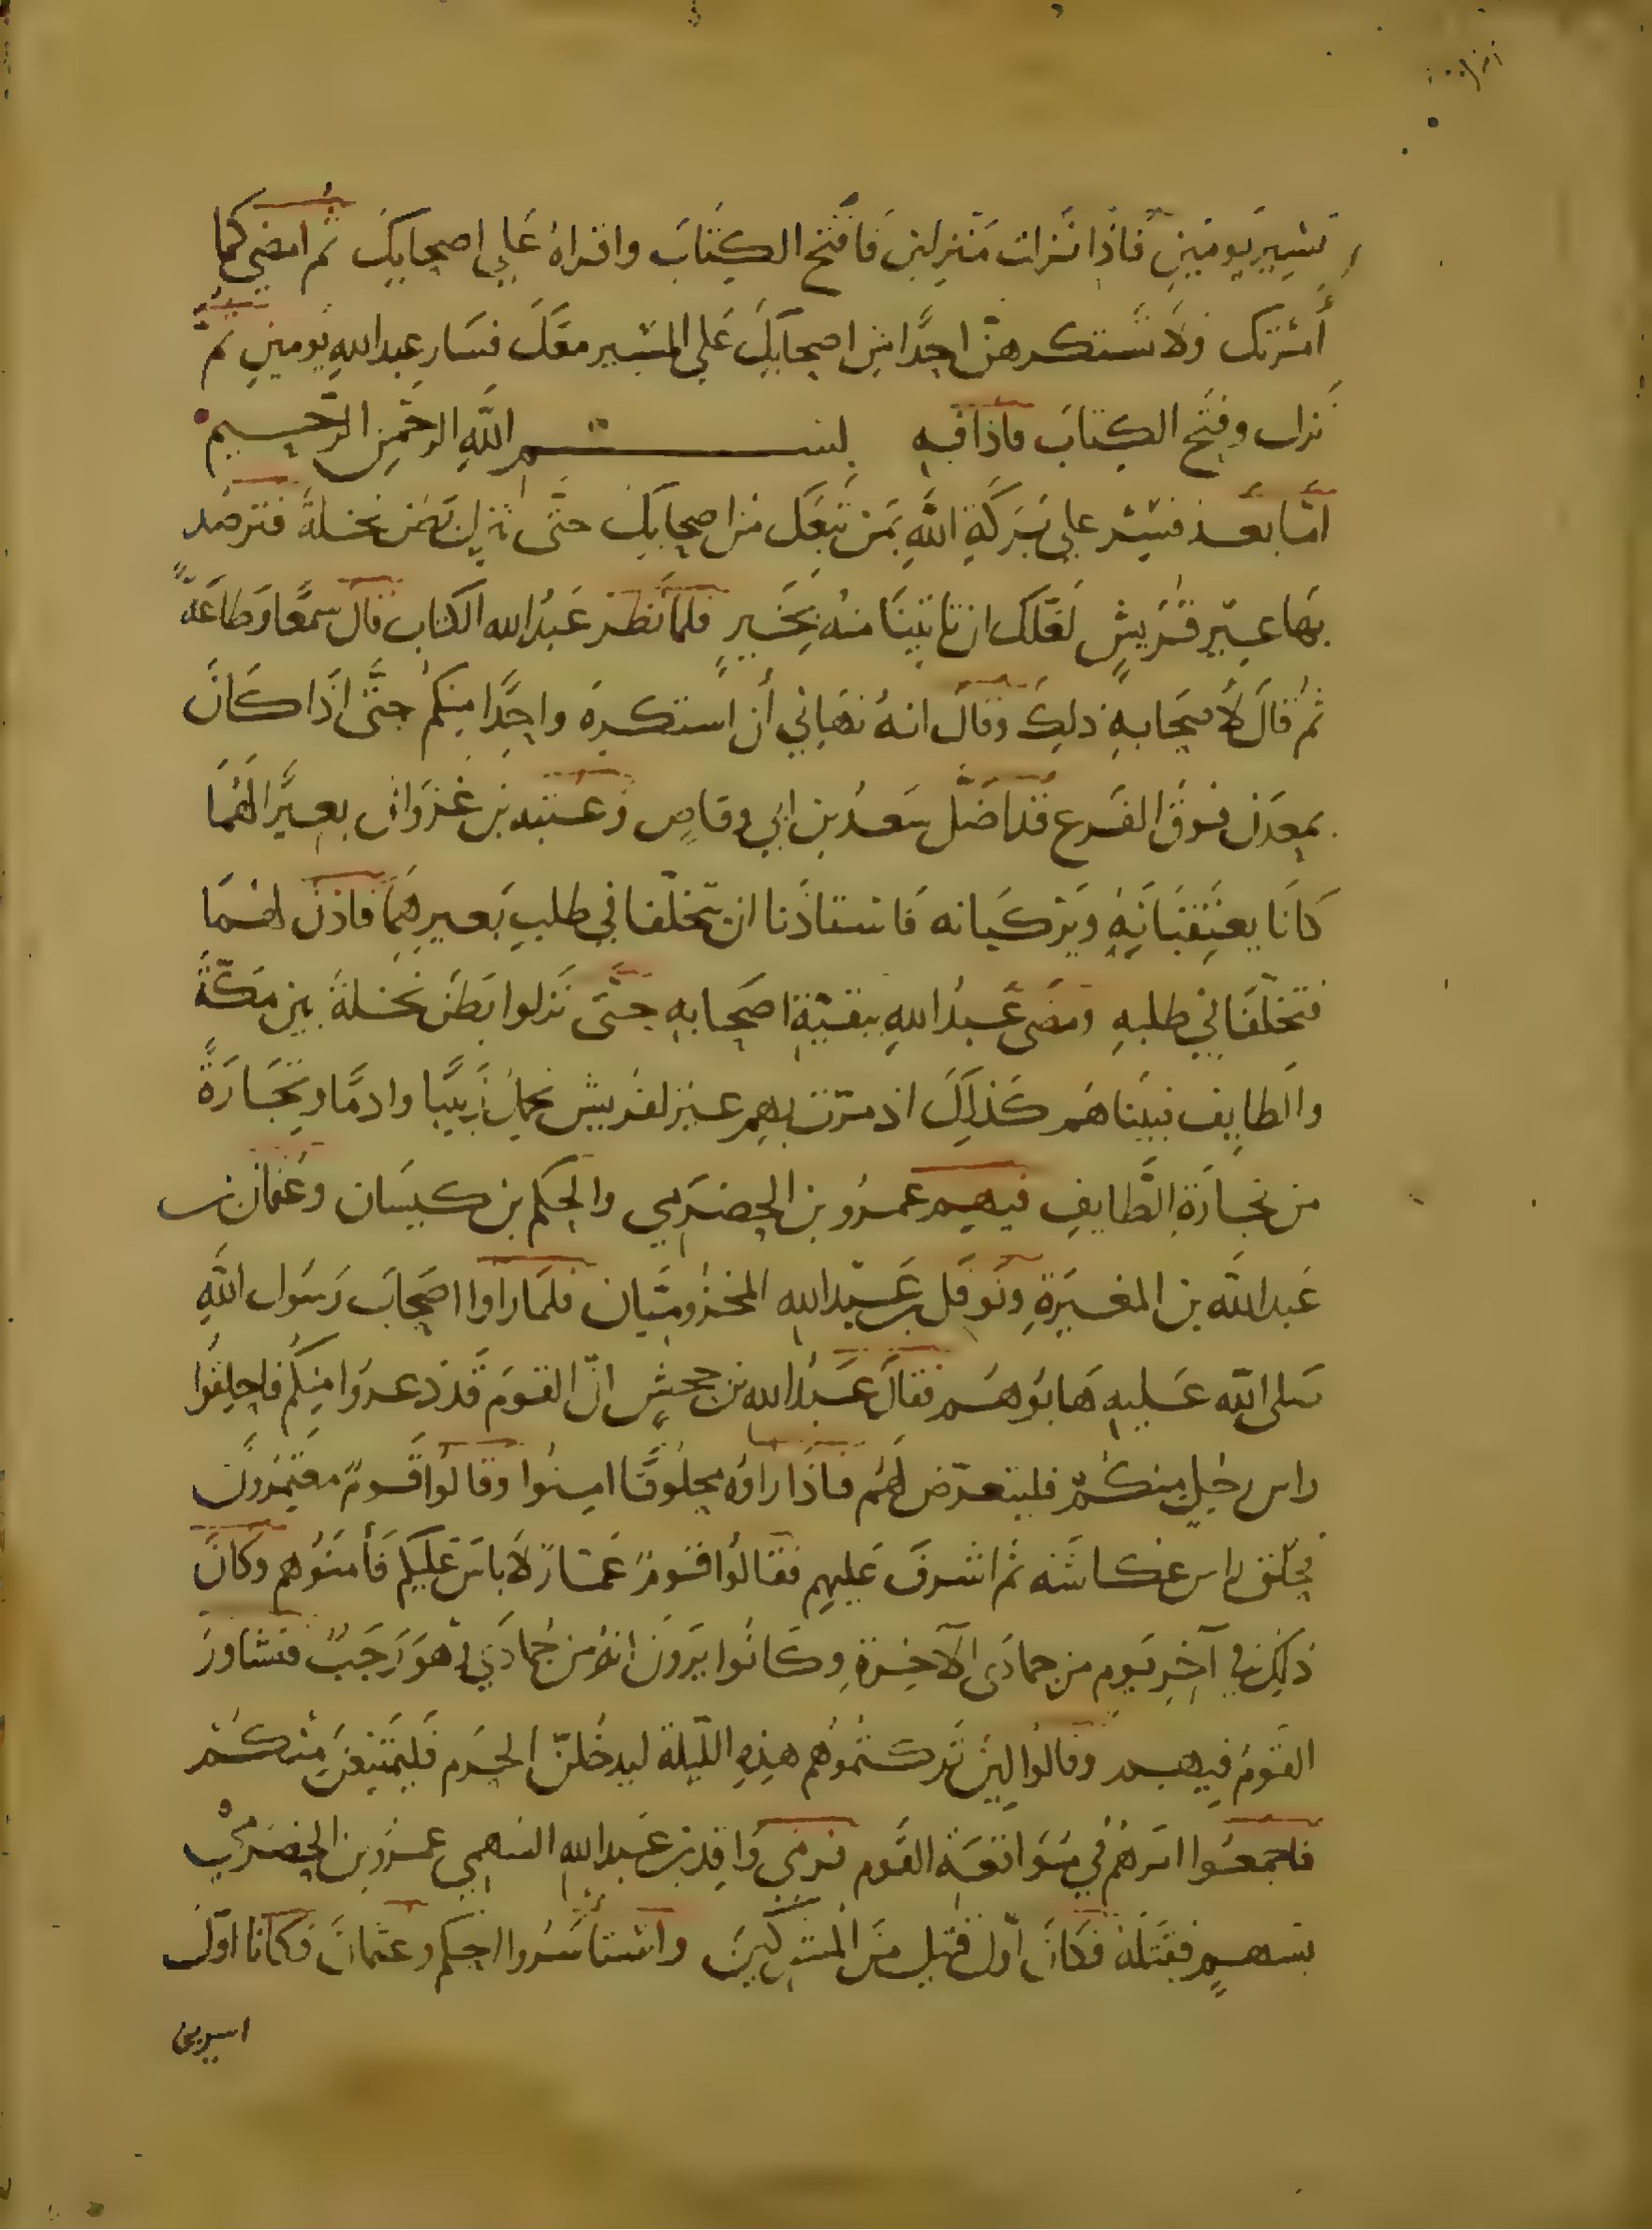 تسير يومين فاذا نزلت منزلين فافتح الكتاب واقراه على اصحابك ثم امضي كما
أمرتك ولا تستكرهن احدا من اصحابك على المسير معك فسار عبدالله يومين ثم
نزل وفتح الكتاب فاذا فيه بسم الله الرحمن الرحيم
اما بعد فسر على بركة الله بمن تبعك من اصحابك حتى تنزل بطن نخلة فترصد
بها عير قريش لعلك ان تاتينا منه بخير فلما نظر عبد الله الكتاب قال سمعا وطاعة
ثم قال لاصحابه ذلك وقال انه نهاني أن استكره واحدا منكم حتى اذا كان
بمعدن فوق الفرع قد اضل سعد بن ابي وقاص وعتبه بن غزوان بعيرا لهما
كانا يعتقبانه ويركبانه فاستاذنا ان يتخلفا في طلب بعيرهما فاذن لهما
فتخلفا في طلبه ومضى عبد الله ببقية اصحابه حتى نزلوا بطن نخلة بين مكة
والطايف فبيناهم كذلك اذ مرت بهم عير لقريش تحمل زبيبا وادما وتجارة
من تجارة الطايف فيهم عمرو بن الحضرمي والحكم بن كيسان وعثمان بن
عبد الله بن المغيرة ونوفل بن عبد الله المخزوميان فلما راوا اصحاب رسول الله
صلى الله عليه هابوهم فقال عبد الله بن جحش ان القوم قد ذعروا منكم فاحلقوا
راس رجل منكم فليتعرض لهم فاذا راوه محلوقا امنوا وقالوا قوم معتمرون
فحلق راس عكاشه ثم اشرف عليهم فقالوا قوم عمار لا باس عليكم فأمنوهم وكان
ذلك في آخر يوم من جمادى الآخرة وكانوا يرون انه من جمادي او هو رجب فتشاور
القوم فيهم وقالوا لين تركتموهم هذه الليلة ليدخلن الحرم فليمتنعن منكم
فاجمعوا امرهم في مواقعة القوم فرمى واقد بن عبد الله السهمي عمرو بن الحضرمي
بسهم فقتله فكان اول قتيل من المشركين واستأسروا الحكم وعثمان فكانا اول
اسيرين